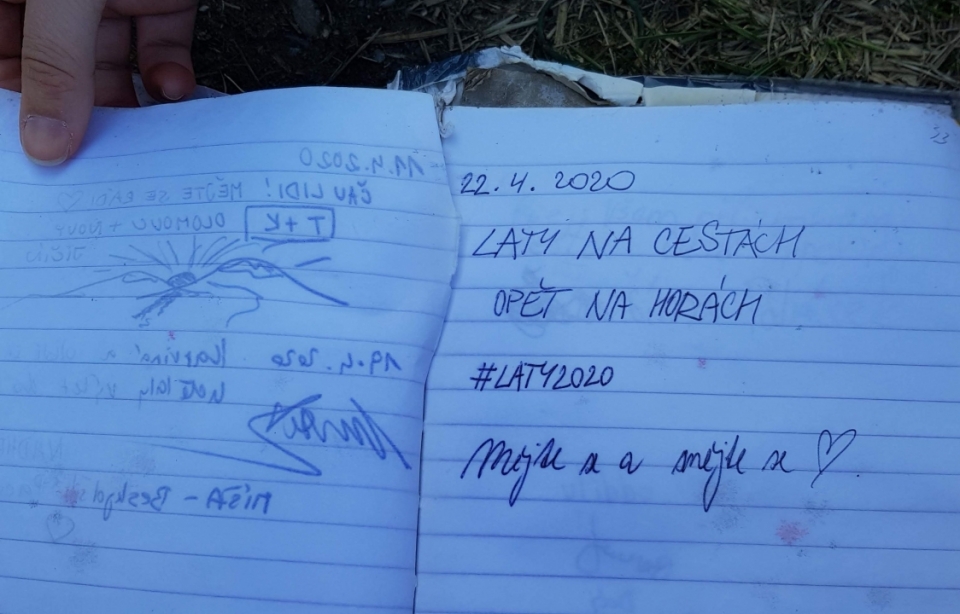 11.4.2020
ČAU LIDI! MĚJTE SE RÁDI ♡
T+K OLOMOUC + NOVÝ
JIČÍN
19.4.2020 Karviná a
MÍŠA - Beskyd
22.4.2020
LATY NA CESTÁCH
OPĚT NA HORÁCH
#LATY2020
Mějte se a smějte se ♡.